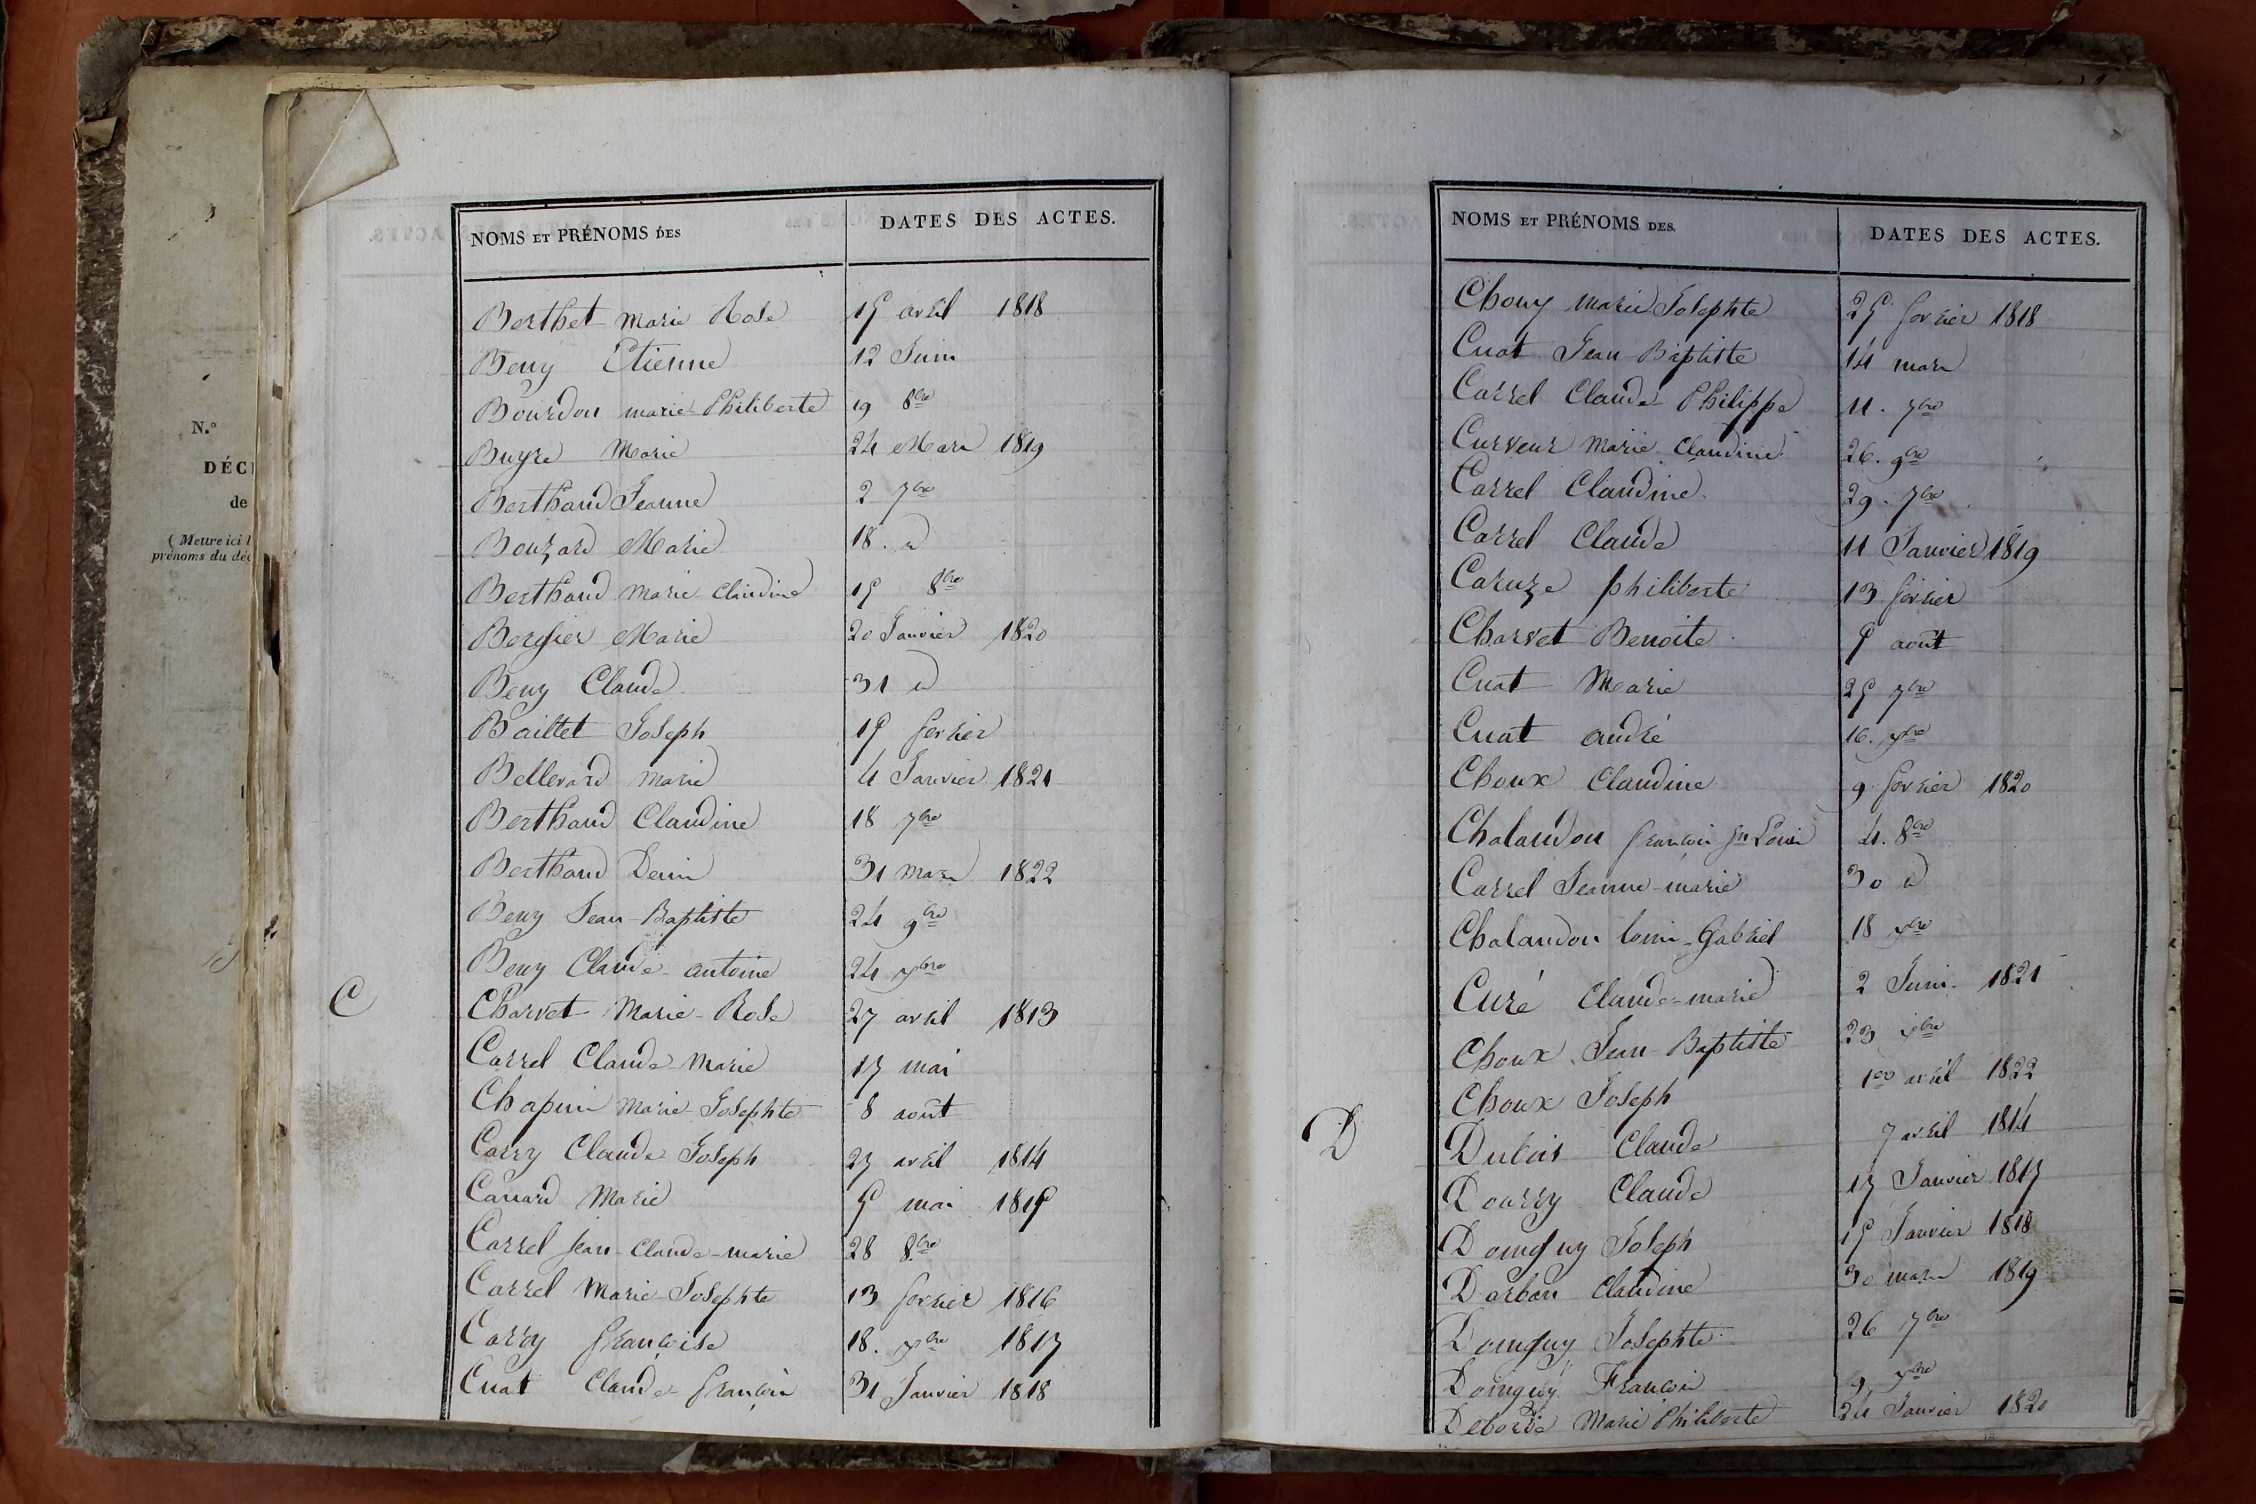 N.º
DÉC
de
( Mettre ici l
prénoms du déc
NOMS ET PRÉNOMS DES DATES DES ACTES.
Berthet Marie Rose 15 avril 1818
Beny Etienne 12 Juin
Bourdon marie Philiberte 19 8bre
Buyre Marie 24 Mars 1819
Berthaud Jeanne 2 7bre
Bouzard Marie 18. d
Berthaud Marie Claudine 15 8bre
Bergier Marie 20 Janvier 1820
Beny Claude 31 d
Baillet Joseph 15 fevrier
Bellevard marie 4 Janvier 1821
Berthaud Claudine 18 7bre
Berthaud Denis 31 mars 1822
Beny Jean-Baptiste 24 9bre
Beny Claude antoine 24 xbre
C
Charvet Marie-Rose 27 avril 1813
Carrel Claude Marie 17 mai
Chapuis Marie-Josephte 8 août
Carry Claude Joseph 27 avril 1814
Canard Marie 5 mai 1815
Carrel Jean-Claude-marie 28 8bre
Carrel Marie-Josephte 13 fevrier 1816
Carry françoise 18. xbre 1817
Cuat Claude françois 31 Janvier 1818
NOMS ET PRÉNOMS DES. DATES DES ACTES.
Chouy marie Josephte 25 fevrier 1818
Cuat Jean-Baptiste 14 mars
Carrel Claude Philippe 11. 7bre
Curveur Marie Claudine 26. 9bre
Carrel Claudine 29. 7bre
Carrel Claude 11 Janvier 1819
Caruze philiberte 13 fevrier
Charvet Benoite 5 août
Cuat Marie 25 7bre
Cuat andré 16. xbre
Choux Claudine 9 fevrier 1820
Chalandon françois Jn Louis 4. 8bre
Carrel Jeanne-marie 30 d
Chalandon louis-Gabriel 18 xbre
Curé Claude-marie 2 Juin. 1821
Choux Jean-Baptiste 23 xbre
Choux Joseph 1er avril 1822
D
Dubois Claude 7 avril 1814
Dourry Claude 17 Janvier 1817
Domguy Joseph 15 Janvier 1818
Darbon Claudine 30 mars 1819
Domguy Josephte 26 7bre
Domguy François 9 xbre
Deborde Marie Philiberte 24 Janvier 1820